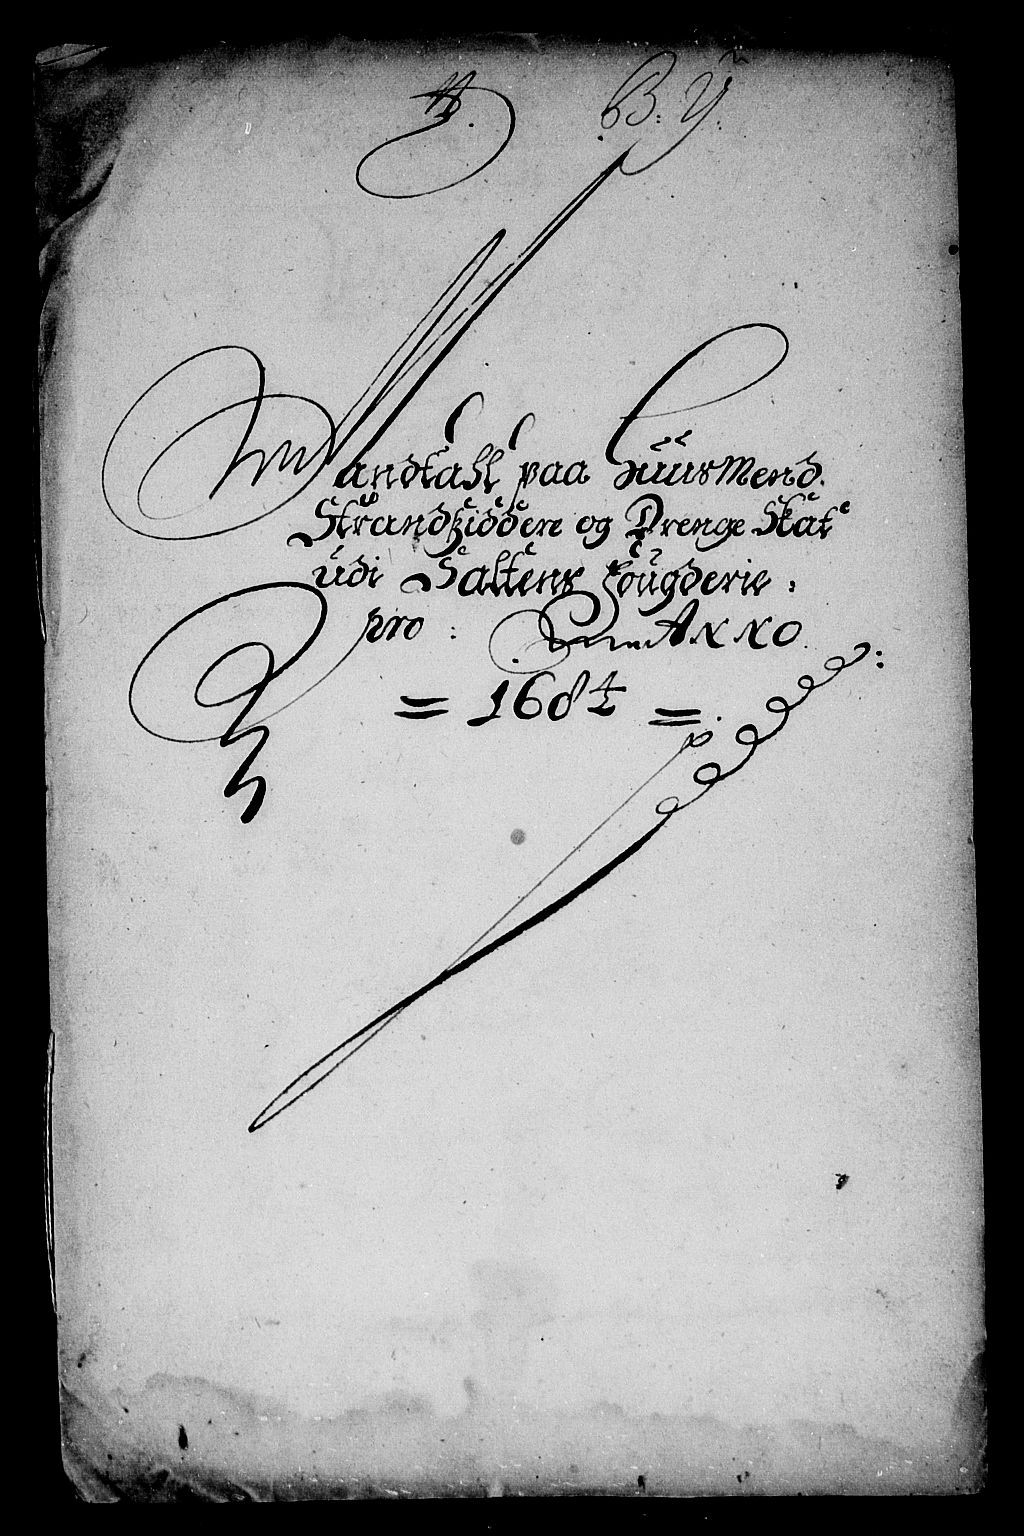 B: Y:
Mandtahl paa Huusmend.
Strandsiddere og Drenge Skat
udi Saltens fougderie :
pro : Anno
= 1684 =